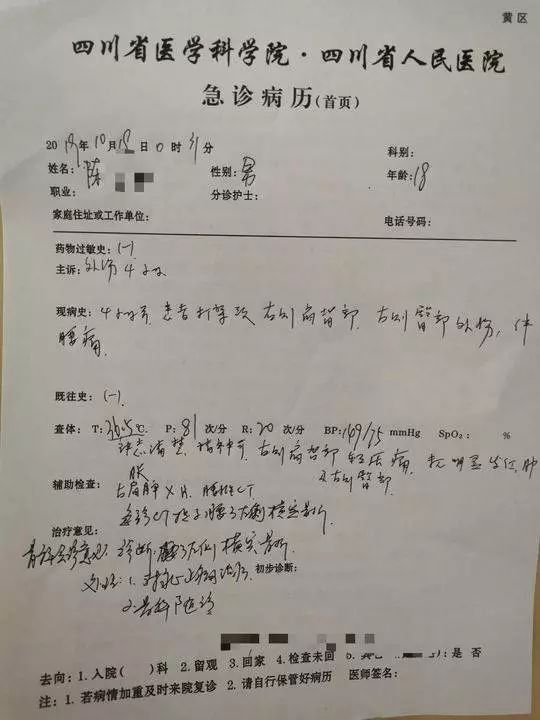 黄区
四川省医学科学院·四川省人民医院
急诊病历(首页)
2019年10月15日0时31分 科别:
姓名:陈 性别:男 年龄:18
职业: 分诊护士:
家庭住址或工作单位: 电话号码:
药物过敏史:(-)
主诉:外伤4小时
现病史:4小时前患者打架致右侧肩背部、右侧臀部外伤,伴
腰痛
既往史:(-).
查体: T:36.5℃. P:81次/分 R:20次/分 BP:149/75mmHg SpO₂: %
神志清楚 右侧肩背部 压痛 无明显 肿
胀 及右侧臀部
辅助检查: 右肩胛X片 腰椎CT
急诊CT提示腰3左侧横突骨折
治疗意见:
骨科会诊意见: 诊断 腰3左侧横突骨折
处理: 1. 对症止痛治疗 初步诊断:
2. 骨科随诊
去向:1.入院( )科 2.留观 3.回家 4.检查未回 :是 否
注:1.若病情加重及时来院复诊 2.请自行保管好病历 医师签名: